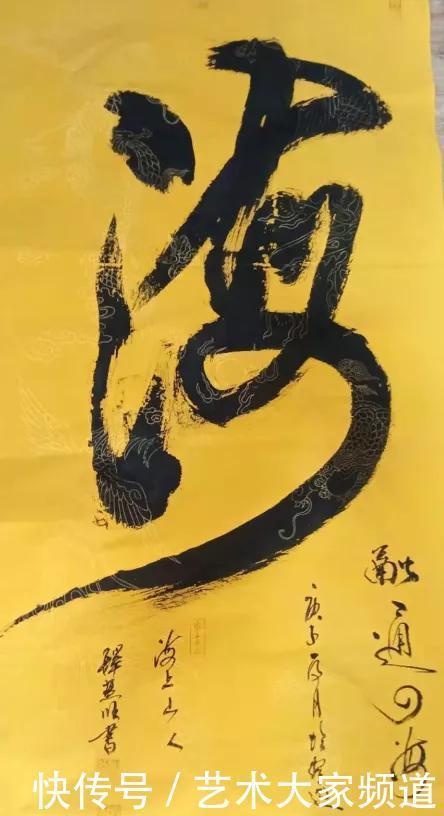 海
融通四海
庚子夏月於
海上山人
釋慧 書
快传号 / 艺术大家频道